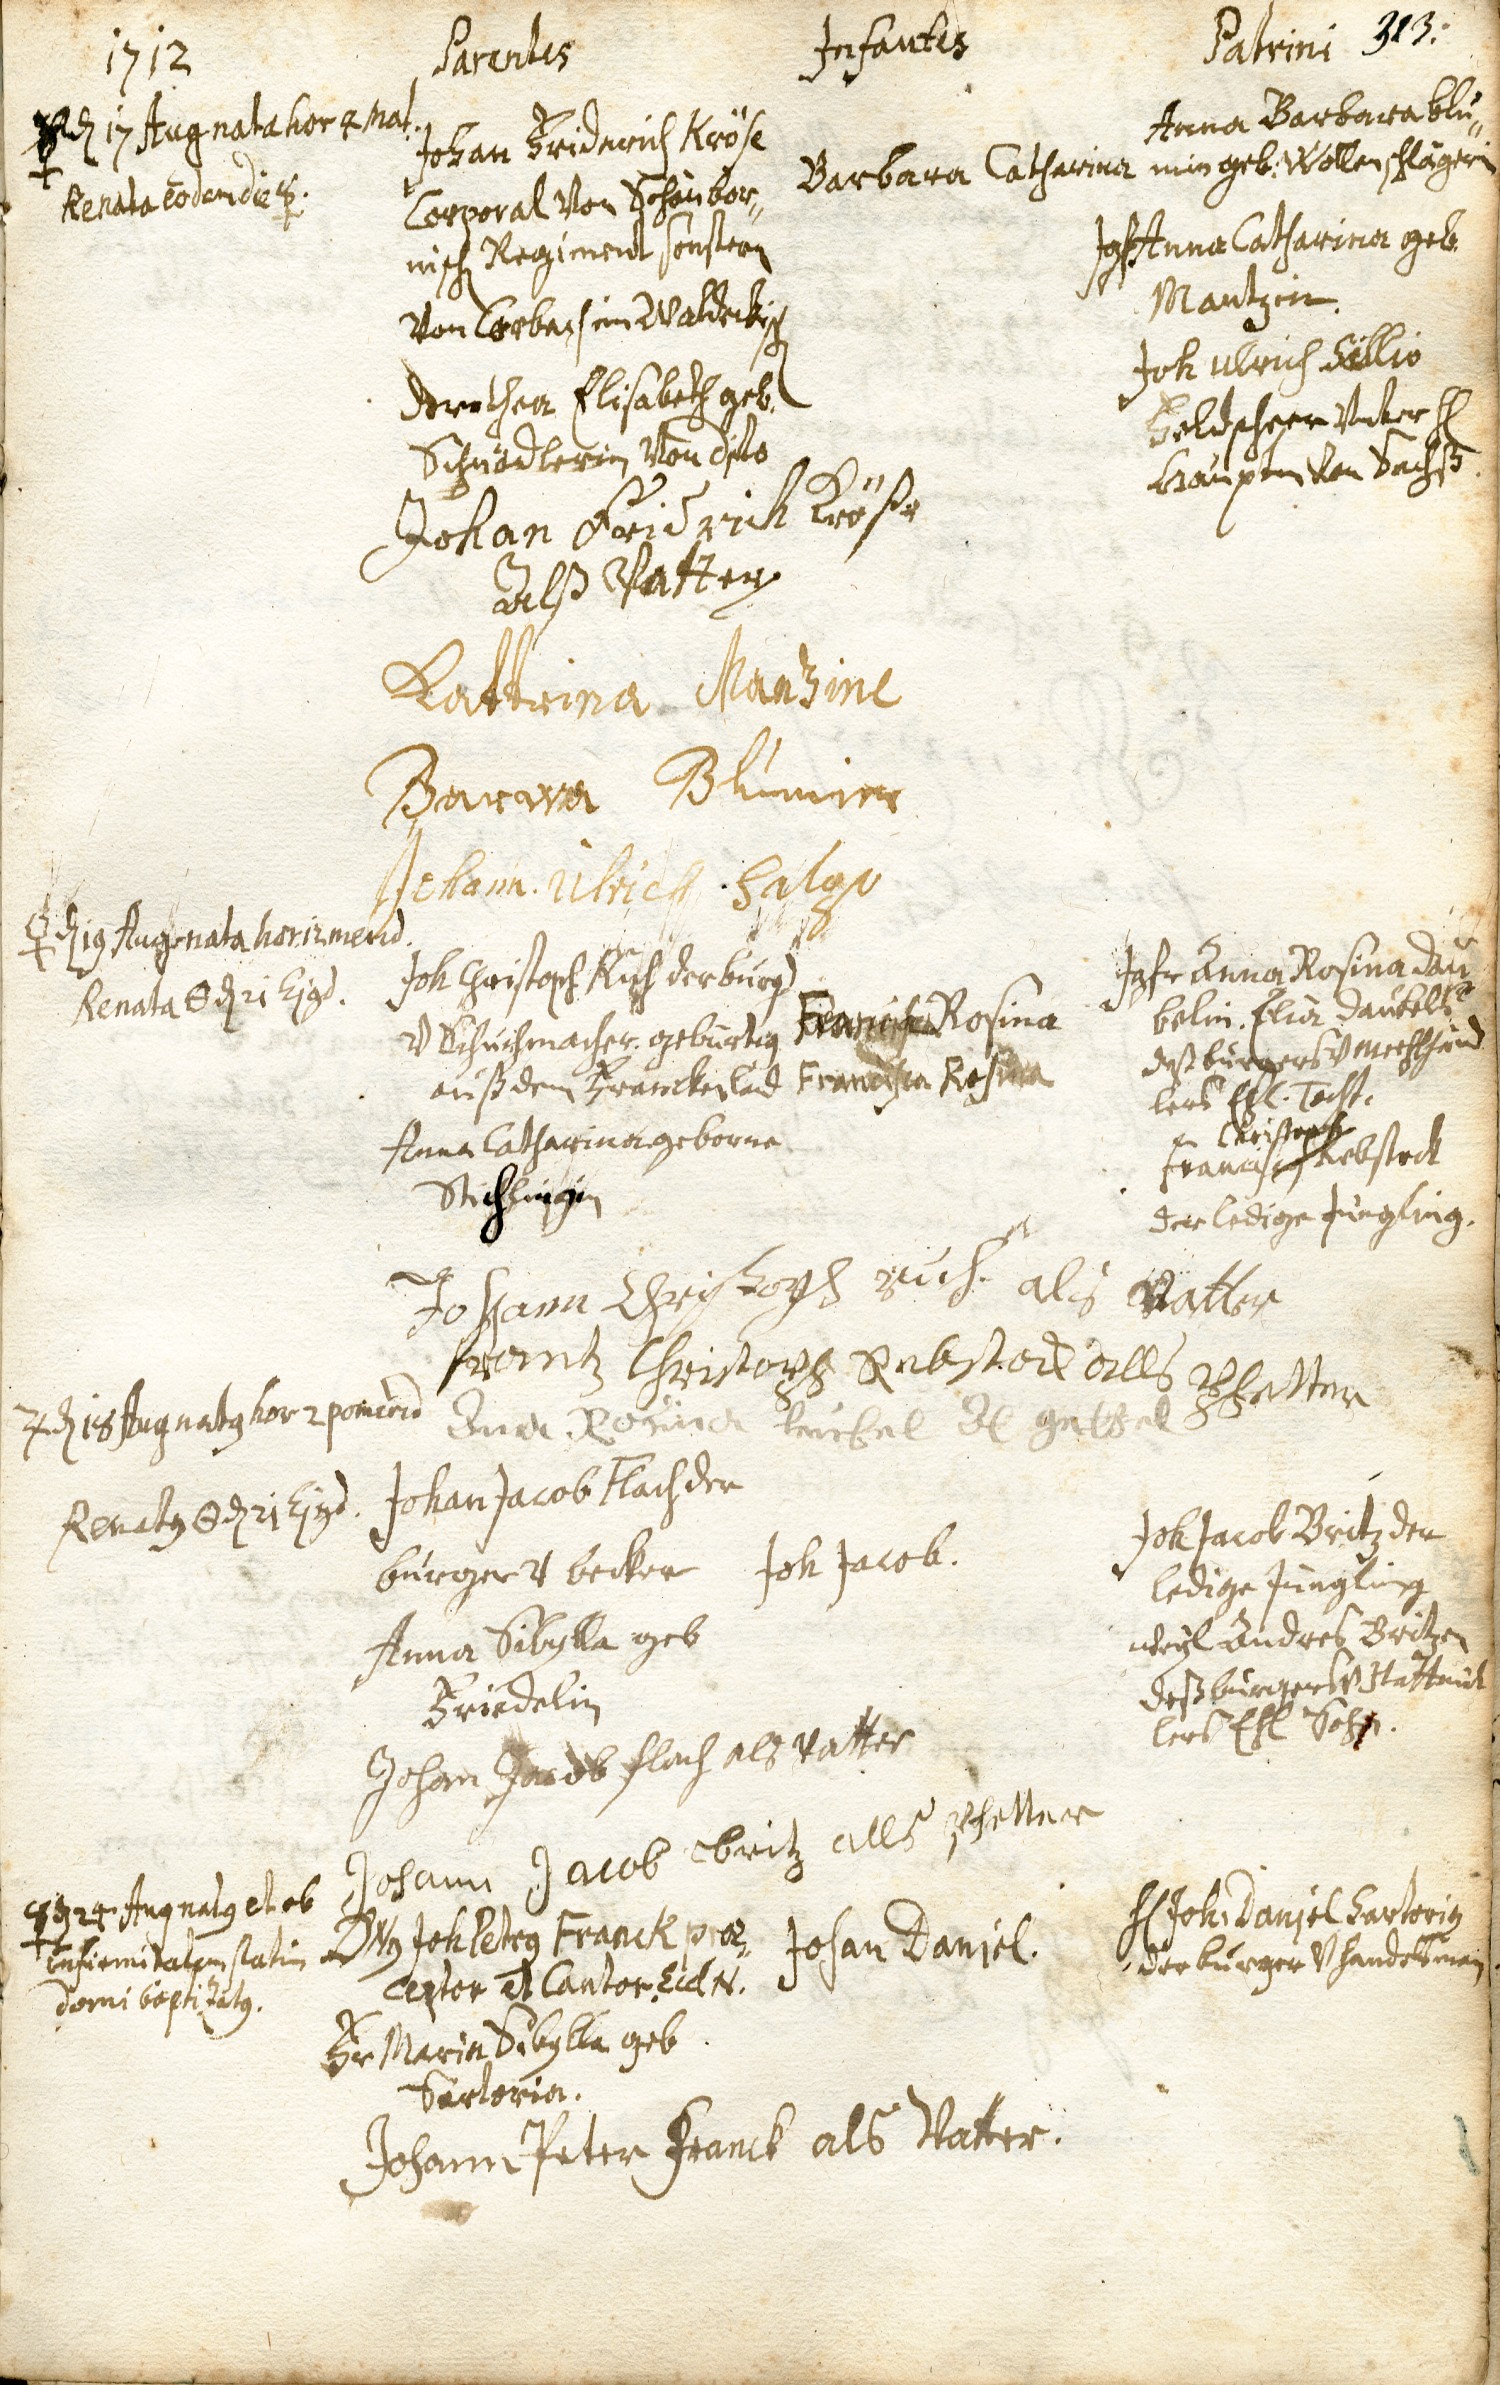 1712 Parentes Infantes Patrini 313.
☿ d 17 Aug nata hor 4 mat.
Renata eodem die ☿.
Johan Friderich Kröse
Corporal von Schönbor„
nisch Regiment sonsten
von Corbach im Waldeckisch
Dorothea Elisabeth geb.
Schnedlerin von dito
Barbara Catharina
Anna Barbara blu„
min geb. Wollenschlägerin
Jgfr Anna Catharina geb.
Mantzin.
Joh Ulrich
Feldscheer unter H
Hauptm von Sachß.
Johan Fridrich Kröße
Alß Vatter
Kattrina Manzine
Barwra Blumine
Johann. Ulrich. Salgo
♀ d 19 Aug nata hor 12 merid.
Renata ☉ d 21 Ejusd.
Joh Christoph Ruch der burg
v Schuchmacher. gebürtig
auß dem Franckenland
Anna Catharina geborne
Stichlingin
Francisca Rosina
Francisca Rosina
Jgfr Anna Rosina Dau
belin. Elia Daubels
deß burgers v meelhänd
lers Ehl. Tocht.
Christoph
Francisc Rebstock
der ledige Jüngling.
Johann Christoph Ruch als Vatter
Frantz Christoph Rebstock alls Pfetter
Ana Rosina
♃ d 18 Aug natq hor 2 pomerid
Renatq ☉ d 21 Ejusd.
Johan Jacob Flach der
burger v becker
Anna Sibylla geb
Friedelin
Joh Jacob.
Joh Jacob Britz der
ledige Jüngling
weyl Andres Britzen
deß burgers v Stattmül
lers Ehl Sohn.
Johan Jacob flach als Vatter
Johann Jacob britz alls Pfetter
☿ d 24 Aug natq et ob
infirmitatem statim
domi baptizatq.
Dnq Joh Petrq Franck præ„
ceptor et Cantor Eccl N.
Fr Maria Sibylla geb
Sartoria.
Johan Daniel.
H Joh. Daniel Sartoriq
der burger v handelsman
Johann Peter Franck als Vatter.